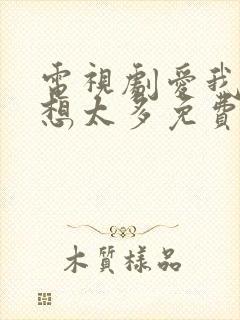 電視劇愛我
想太多免費
木質樣品